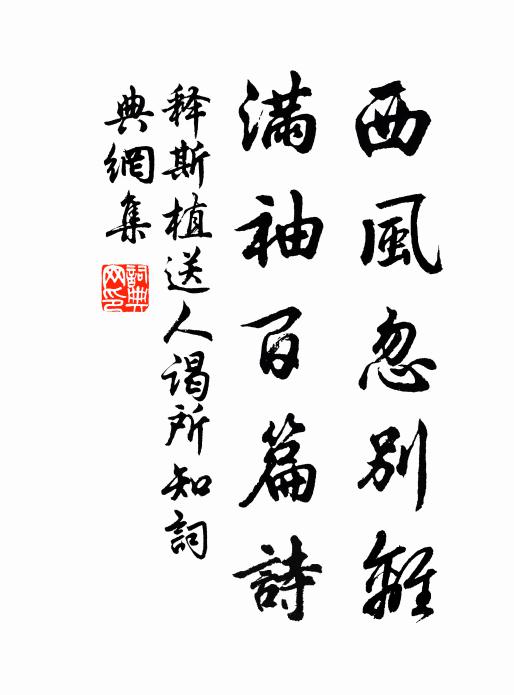 西風忽別離
滿袖百篇詩
释斯植送人谒所知詞
典網集
詞典網印